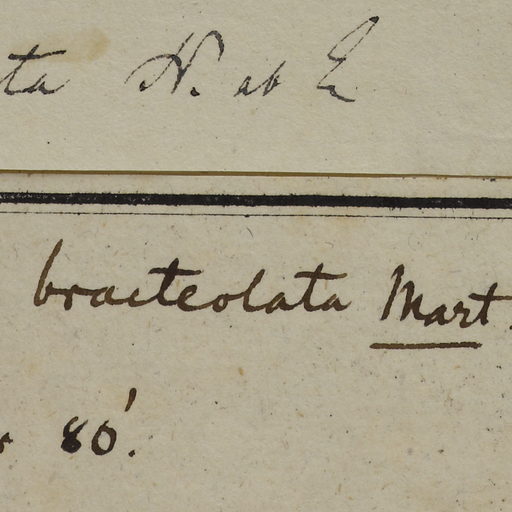 ta N. ab E
bracteolata Mart.
80'.